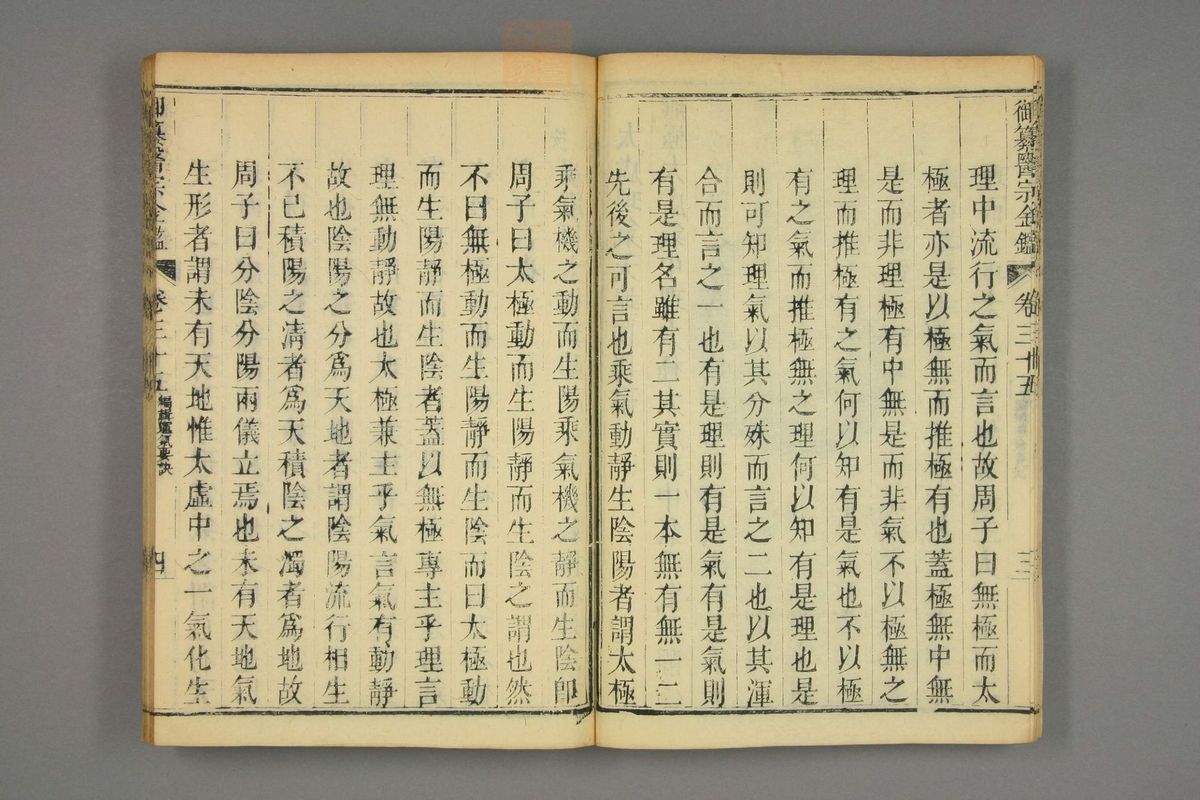 御纂醫宗金鑑 卷三十五 三
理中流行之氣而言也故周子曰無極而太
極者亦是以極無而推極有也蓋極無中無
是而非理極有中無是而非氣不以極無之
理而推極有之氣何以知有是氣也不以極
有之氣而推極無之理何以知有是理也是
則可知理氣以其分殊而言之二也以其渾
合而言之一也有是理則有是氣有是氣則
有是理名雖有二其實則一本無有無一二
先後之可言也乘氣動靜生陰陽者謂太極
乘氣機之動而生陽乘氣機之靜而生陰即
周子曰太極動而生陽靜而生陰之謂也然
不曰無極動而生陽靜而生陰而曰太極動
而生陽靜而生陰者蓋以無極專主乎理言
理無動靜故也太極兼主乎氣言氣有動靜
故也陰陽之分爲天地者謂陰陽流行相生
不已積陽之清者爲天積陰之濁者爲地故
周子曰分陰分陽兩儀立焉也未有天地氣
生形者謂未有天地惟太虛中之一氣化生
御纂醫宗金鑑 卷三十五 編輯運氣要訣 四